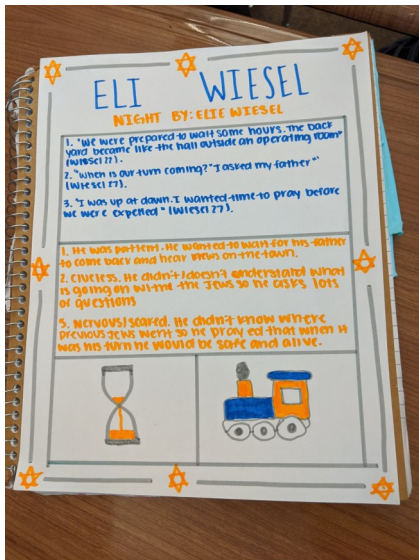 ELI WIESEL
NIGHT BY: ELIE WIESEL
1. "We were prepared to wait some hours. The back
yard became like the hall outside an operating room"
(Wiesel 27).
2. "When is our turn coming?" I asked my father"
(Wiesel 27).
3. "I was up at dawn. I wanted time to pray before
we were expelled" (Wiesel 27).
1. He was patient. He wanted to wait for his father
to come back and hear news on the town.
2. Clueless. He didn't/doesn't understand what
is going on with the Jews so he asks lots
of questions
3. Nervous/scared. He didn't know where
previous Jews went so he prayed that when it
was his turn he would be safe and alive.